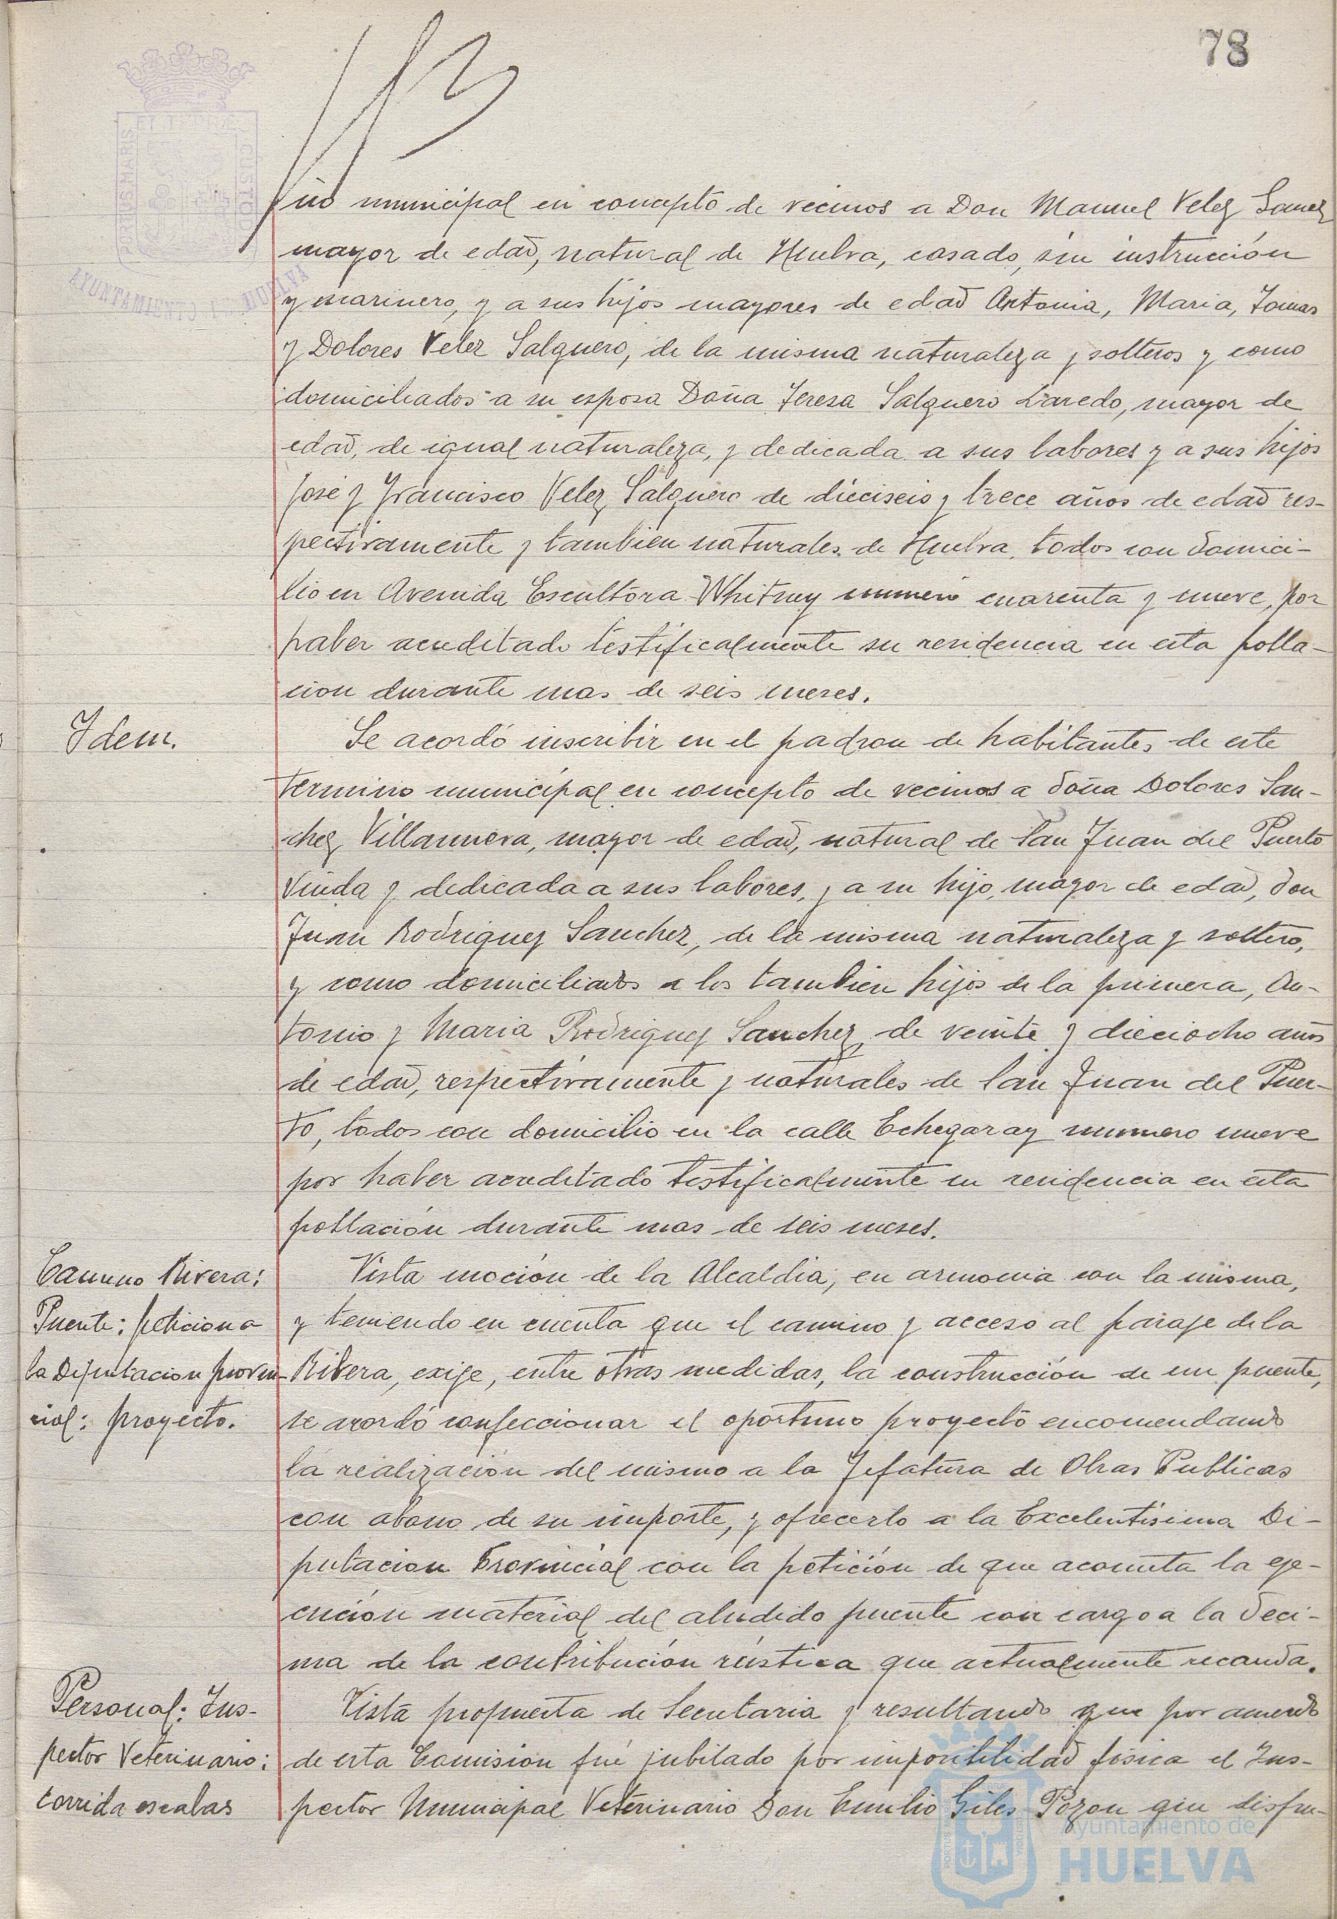 78
PORTUS MARIS ET TERRAE CUSTODIA
AYUNTAMIENTO DE HUELVA
no municipal en concepto de vecinos a Don Manuel Velez Gomez
mayor de edad, natural de Huelva, casado, sin instrucción
y marinero, y a sus hijos mayores de edad Antonia, Maria, Tomas
y Dolores Velez Salguero, de la misma naturaleza y solteros y como
domiciliados a su esposa Doña Teresa Salguero Laredo, mayor de
edad, de igual naturaleza, y dedicada a sus labores y a sus hijos
José y Francisco Velez Salguero de dieciseis y trece años de edad res-
pectivamente y tambien naturales de Huelva, todos con domici-
lio en Avenida Escultora Whitney numero cuarenta y nueve, por
haber acreditado testificalmente su residencia en esta pobla-
cion durante mas de seis meses.
Idem.
Se acordó inscribir en el padron de habitantes de este
termino municipal en concepto de vecinos a doña Dolores San-
chez Villanueva, mayor de edad, natural de San Juan del Puerto
viuda y dedicada a sus labores, y a su hijo, mayor de edad, don
Juan Rodriguez Sanchez, de la misma naturaleza y soltero,
y como domiciliados a los tambien hijos de la primera, An-
tonio y Maria Rodriguez Sanchez, de veinte y dieciocho años
de edad, respectivamente y naturales de San Juan del Puer-
to, todos con domicilio en la calle Echegaray numero nueve
por haber acreditado testificalmente su residencia en esta
población durante mas de seis meses.
Camino Rivera:
Puente: peticion a
la Diputacion provin-
cial: proyecto.
Vista moción de la Alcaldia, en armonia con la misma,
y teniendo en cuenta que el camino y acceso al paraje de la
Ribera, exige, entre otras medidas, la construcción de un puente,
se acordó confeccionar el oportuno proyecto encomendando
la realización del mismo a la Jefatura de Obras Publicas
con abono de su importe, y ofrecerlo a la Excelentisima Di-
putacion Provincial con la petición de que acometa la eje-
cución material del aludido puente con cargo a la deci-
ma de la contribución rústica que actualmente recauda.
Personal: Ins-
pector Veterinario:
corrida escalas
Vista propuesta de Secretaria y resultando que por acuerdo
de esta Comisión fué jubilado por imposibilidad fisica el Ins-
pector Municipal Veterinario Don Emilio Giles Pozon que disfru-
Ayuntamiento de
HUELVA